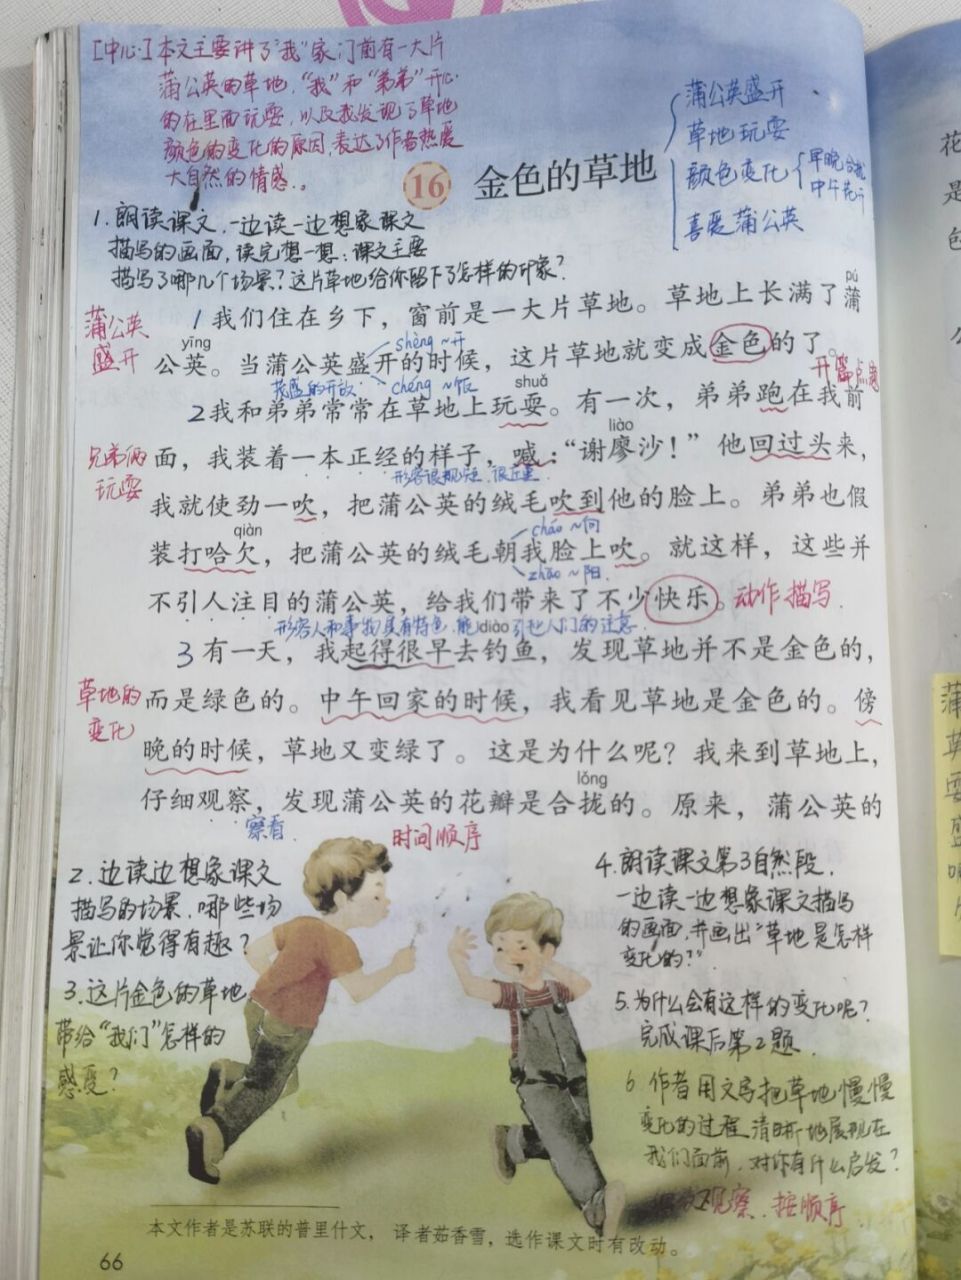 [中心]本文主要讲了“我”家门前有一大片
蒲公英的草地,“我”和“弟弟”开心
的在里面玩耍,以及我发现了草地
颜色的变化的原因,表达了作者热爱
大自然的情感。
蒲公英盛开
草地玩耍
颜色变化
早晚合拢
中午花开
喜爱蒲公英
16 金色的草地
1.朗读课文,一边读一边想象课文
描写的画面,读完想一想:课文主要
描写了哪几个场景?这片草地给你留下了怎样的印象?
pú
蒲公英
盛开
1我们住在乡下,窗前是一大片草地。草地上长满了蒲
yīng
shèng ~开
公英。当蒲公英盛开的时候,这片草地就变成金色的了。
开篇点题
茂盛的开放
chéng ~饭
shuǎ
2我和弟弟常常在草地上玩耍。有一次,弟弟跑在我前
liào
兄弟俩
玩耍
面,我装着一本正经的样子,喊:“谢廖沙!”他回过头来,
形容很规矩,很庄重
我就使劲一吹,把蒲公英的绒毛吹到他的脸上。弟弟也假
qiàn
cháo ~向
装打哈欠,把蒲公英的绒毛朝我脸上吹。就这样,这些并
zhāo ~阳
不引人注目的蒲公英,给我们带来了不少快乐。
动作描写
形容人和事物具有特色,能引起人们的注意
diào
3有一天,我起得很早去钓鱼,发现草地并不是金色的,
草地的
变化
而是绿色的。中午回家的时候,我看见草地是金色的。傍
晚的时候,草地又变绿了。这是为什么呢?我来到草地上,
lǒng
仔细观察,发现蒲公英的花瓣是合拢的。原来,蒲公英的
察看
时间顺序
2.边读边想象课文
描写的场景,哪些场
景让你觉得有趣?
3.这片金色的草地
带给“我们”怎样的
感受?
4.朗读课文第3自然段,
一边读一边想象课文描写
的画面,并画出“草地是怎样
变化的?”
5.为什么会有这样的变化呢?
完成课后第2题.
6.作者用文字把草地慢慢
变化的过程,清晰地展现在
我们面前,对你有什么启发?
观察,按顺序
本文作者是苏联的普里什文,译者茹香雪,选作课文时有改动。
66
花
是
蒲
英
耍